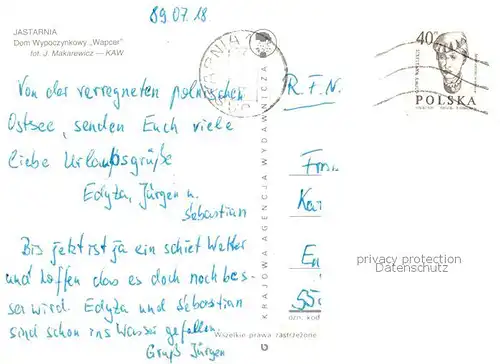 89.07.18
JASTARNIA
Dom Wypoczynkowy „Wapcer"
fot. J. Makarewicz — KAW
Von der verregneten polnischen
Ostsee, senden Euch viele
liebe Urlaubsgrüße
Edyta, Jürgen u.
Sebastian
Bis jetzt ist ja ein schiet Wetter
und hoffen das es doch noch bes-
ser wird. Edyta und Sebastian
sind schon ins Wasser gefallen.
Gruß Jürgen
KRAJOWA AGENCJA WYDAWNICZA
Wszelkie prawa zastrzeżone
R.F.N.
55
dzn. kod
40
POLSKA
privacy protection
Datenschutz